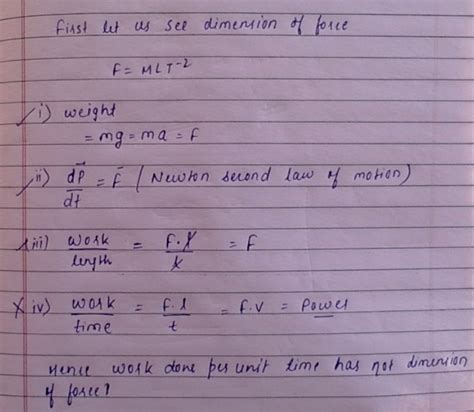 First let us see dimension of force
F = MLT⁻²
✓i) weight
= mg = ma = F
✓ii) dP⃗/dt = F⃗ (Newton second law of motion)
✓iii) work/length = F.l/l = F
✗iv) work/time = F.l/t = F.V = Power
Hence work done per unit time has not dimension
of force?